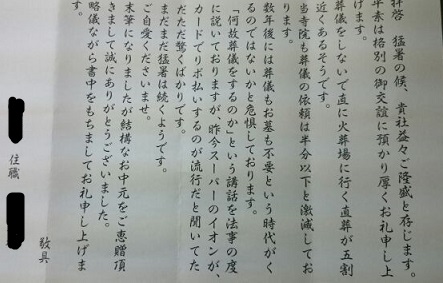 拝啓　猛暑の候、貴社益々ご隆盛と存じます。
平素は格別の御交誼に預かり厚くお礼申し上
げます。
葬儀をしないで直に火葬場に行く直葬が五割
近くあるそうです。
当寺院も葬儀の依頼は半分以下と激減してお
ります。
数年後には葬儀もお墓も不要という時代がく
るのではないかと危惧しております。
「何故葬儀をするのか」という講話を法事の度
に説いておりますが、昨今スーパーのイオンが、
カードでリボ払いするのが流行だと聞いてた
だただ驚くばかりです。
まだまだ猛暑は続くようです。
ご自愛くださいませ。
末筆になりましたが結構なお中元をご恵贈頂
きまして誠にありがとうございました。
略儀ながら書中をもちましてお礼申し上げま
す。
敬具
住職